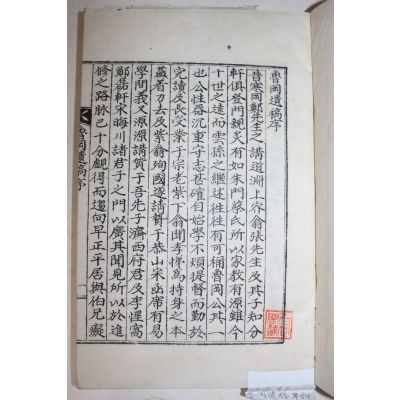 魯岡遺稿序
昔寒岡鄭先生之講道淵上容翁張先生及其子知分
軒俱登門親炙有如朱門蔡氏所以家敎有源雖今
十世之遠而雲孫之繼述往往有可稱魯岡公其一
也公性器沉重守志甚確自始學不煩提督而勤於
究讀及長受業于宗老紫下翁聞孝悌爲持身之本
蓋着力去及紫翁殉國遂請業于恭山宋函席有易
學問義又源源講質于吾先子濟西府君及李惺窩
鄭磊軒宋晦川諸君子之門以廣其聞見所以於進
修之路脉已十分覰得而趨向早正平居與伯兄癡
魯岡遺稿序